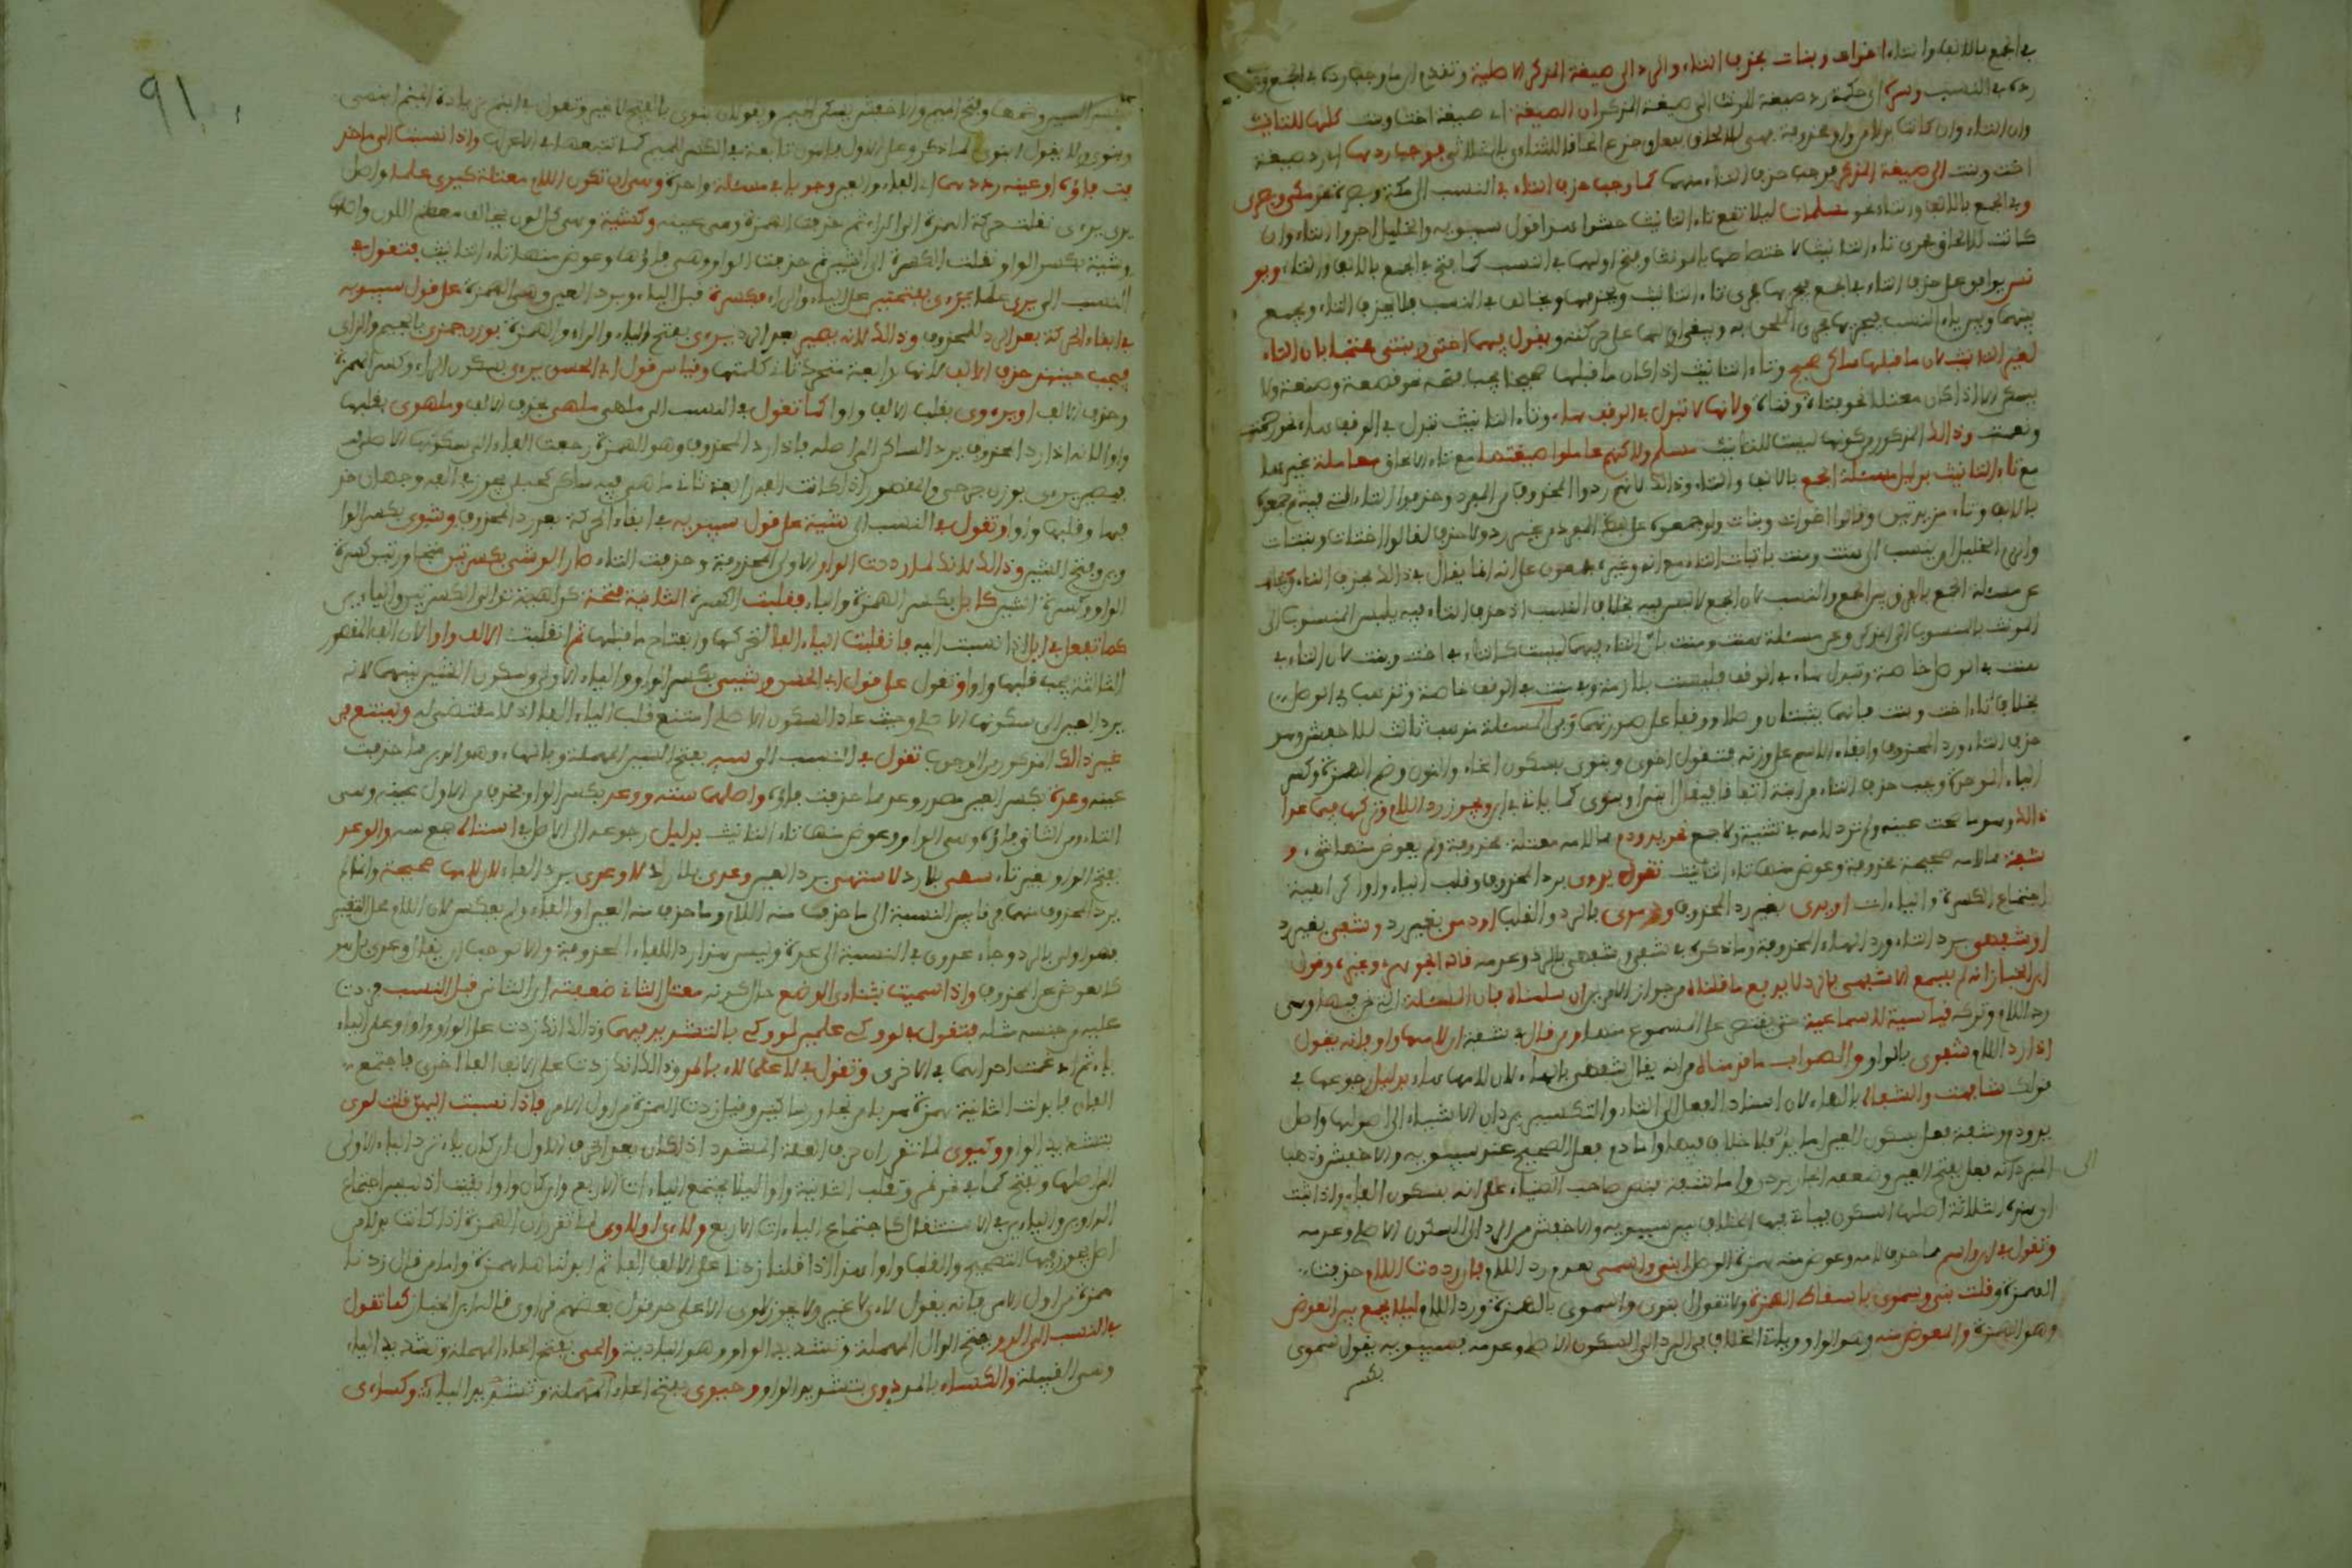 في الجمع بالالف والتاء اخوات وبنات بحذف التاء والرد الى صيغة المذكر الاصلية وتقدم ان ما وجب رده في الجمع وجب
رده في النسب وسره اي حكمة رد صيغة المؤنث الى صيغة المذكر ان الصيغة اي صيغة اخت وبنت كلها للتانيث
وان التاء وان كانت بدلا من واو محذوفة فهي للالحاق بفعل وجذع الحاقا للثنائي بالثلاثي فوجب ردها اي رد صيغة
اخت وبنت الى صيغة المذكر فوجب حذف التاء منهما كما وجب حذف التاء في النسب الى مكة وبصرة نحو مكي وبصري
وفي الجمع بالالف والتاء نحو مسلمات ليلا تقع تاء التانيث حشوا هذا قول سيبويه والخليل اجروا التاء وان
كانت للالحاق مجرى تاء التانيث لاختصاصها بالمؤنث وفتح اولهما في النسب كما فتح في الجمع بالالف والتاء ويو
نس يوافق على حذف التاء في الجمع فيجريها مجرى تاء التانيث ويحذفها ويخالف في النسب فلا يحذف التاء ويجمع
بينهما وبين ياء النسب فيجريها مجرى الملحق به ويبقي اولهما على حركته ويقول فيهما اختي وبنتي محتجا بان التاء
لغير التانيث لان ما قبلها ساكن صحيح وتاء التانيث اذا كان ما قبلها صحيحا يجب فتحه نحو قصعة وصنعة ولا
يسكن الا اذا كان معتلا نحو فتاة وقناة ولانها لا تبدل في الوقف هاء وتاء التانيث تبدل في الوقف هاء نحو رحمة
ونعمة وذالك المذكور من كونها ليست للتانيث مسلم ولاكنهم عاملوا صيغتهما مع تاء الالحاق معاملة بنيتهما
مع تاء التانيث بدليل مسئلة الجمع بالالف والتاء وذالك لانهم ردوا المحذوف من المفرد وحذفوا التاء التي فيه ثم جمعوه
بالالف وتاء مزيدتين وقالوا اخوات وبنات ولو جمعوه على هيئة المفرد من غير رد ولا حذف لقالوا اختات وبنتات
والزم الخليل ان ينسب الى هنت ومنت باثبات التاء مع انه وغيره مجمعون على انه انما يقال في ذالك بحذف التاء ويجاب
عن مسئلة الجمع بالفرق بين الجمع والنسب لان الجمع لا لبس فيه بخلاف النسب اذ حذف التاء فيه يلبس المنسوب الى
المونث بالمنسوب الى المذكر وعن مسئلة هنت ومنت بان التاء فيهما ليست كالتاء في اخت وبنت لان التاء في
هنت في الوصل خاصة وتبدل هاء في الوقف فليست بلازمة وفي منت في الوقف خاصة وتذهب في الوصل
بخلاف تاء اخت وبنت فانهما يثبتان وصلا ووقفا على صورتهما وفي المسئلة مذهب ثالث للاخفش وهو
حذف التاء ورد المحذوف وابقاء الاسم على وزنه فتقول اخوي وبنوي بسكون الخاء والنون وضم الهمزة وكسر
الباء الموحدة ويجب حذف التاء من ابنة اتفاقا فيقال ابني او بنوي كما ياتي في ابن ويجوز رد اللام وتركها فيما عدا
ذالك وهو ما صحت عينه ولم ترد لامه في تثنية ولا جمع نحو يد ودم مما لامه معتلة محذوفة ولم يعوض منها شيء و
شفة مما لامه صحيحة محذوفة وعوض منها تاء التانيث تقول يدوي برد المحذوف وقلب الياء واوا كراهية
اجتماع الكسرة والياءات او يدي بغير رد المحذوف ودموي بالرد والقلب او دمي بغير رد وشفي بغير رد
او شفهي برد التاء ورد الهاء المحذوفة وما ذكره في شفي وشفهي بالرد وعدمه قاله الجوهري وغيره وقول
ابن الخباز انه لم يسمع الا شفهي بالرد لا يدفع ما قلناه من جواز الامرين ان سلمناه فان المسئلة التي نحن فيها وهي
رد اللام وتركه قياسية لا سماعية حتى يقتصر على المسموع منها ومن قال في شفة ان لامها واو فانه يقول
اذا رد اللام شفوي بالواو والصواب ما قدمناه من انه يقال شفهي بالهاء لان لامها هاء بدليل رجوعها في
قولك شافهت والشفاه بالهاء لان اسناد الفعل الى التاء والتكسير يردان الاشياء الى اصولها واصل
يد ودم وشفة فعل بسكون العين اما يد فلا خلاف فيها واما دم ففعل الصحيح عند سيبويه والاخفش وذهب
المبرد انه فعل بفتح العين وضعفه الجاربردي واما شفة فنص صاحب الضياء على انه بسكون الفاء واذا ثبت
ان هذه الثلاثة اصلها السكون فياتي فيها الخلاف بين سيبويه والاخفش من الرد الى السكون الاصلي وعدمه
وتقول في ابن واسم مما حذف لامه وعوض منه همزة الوصل ابني واسمي بعدم رد اللام فان رددت اللام حذفت
الهمزة وقلت بنوي وسموي باسقاط الهمزة ولا تقول ابنوي واسموي بالهمزة ورد اللام ليلا يجمع بين العوض
وهو الهمزة والمعوض منه وهو الواو وياتي الخلاف في الرد الى السكون الاصلي وعدمه فسيبويه يقول سموي
بكسر
الى
91
بكسر السين وضمها وفتح الميم والاخفش بسكون الميم ويقولان بنوي بالفتح لا غير وتقول في ابنم بزيادة الميم ابنمي
وبنوي ولا يقول ابنوي لما ذكر وعلى الاول فالنون تابعة في الكسر للميم كما تتبعها في الاعراب واذا نسبت الى ما حذ
فت فاؤه او عينه رددتهما اي الفاء والعين وجوبا في مسئلة واحدة وهي ان تكون اللام معتلة كيرى علما واصل
يرى يرءى نقلت حركة الهمزة الى الراء ثم حذفت الهمزة وهي عينه وكشية وهي كل لون يخالف معظم اللون واصلها
وشية بكسر الواو نقلت الكسرة الى الشين ثم حذفت الواو وهي فاؤها وعوض منها تاء التانيث فتقول في
النسب الى يرى علما يرءي بفتحتين على الياء والراء فكسرة قبل الياء وبرد العين وهي الهمزة على قول سيبويه
في ابقاء الحركة بعد الرد للمحذوف وذالك لانه يصير بعد الرد يرءى بفتح الياء والراء والهمزة بوزن جمزى بالجيم والزاى
فيجب حينئذ حذف الالف لانها رابعة متحرك ثاني كلمتها وقياس قول ابي الحسن يرءي بسكون الراء وكسر الهمزة
وحذف الالف او يرءوي بقلب الالف واوا كما تقول في النسب الى ملهى ملهي بحذف الالف وملهوي بقلبها
واوا لانه اذا رد المحذوف يرد الساكن الى اصله فاذا رد المحذوف وهو الهمزة رجعت الفاء الى سكونها الاصلي
فيصير يرءى بوزن جرحى والمقصور اذا كانت الفه رابعة ثاني ما هي فيه ساكن كحبلى يجوز في الفه وجهان حذ
فها وقلبها واوا وتقول في النسب الى شية على قول سيبويه في ابقاء الحركة بعد رد المحذوف وشوي بكسر الوا
و وفتح الشين وذالك لانك لما رددت الواو الاولى المحذوفة وحذفت التاء صار الوشي بكسرتين
الواو وكسرة الشين كابل بكسر الهمزة والباء فقلبت الكسرة الثانية فتحة كراهية توالي الكسرتين والياءين
كما تفعل في ابل اذا نسبت اليه فانقلبت الياء الفا لتحركها وانفتاح ما قبلها ثم انقلبت الالف واوا لان الف المقصور
الثالثة يجب قلبها واوا وتقول على قول ابي الحسن وشيي بكسر الواو والياء الاولى وسكون الشين بينهما لانه
يرد العين الى سكونها الاصلي وحيث عاد السكون الاصلي امتنع قلب الياء الفا اذ لا مقتضى له ويمتنع في
غير ذالك المذكور من الوجوب تقول في النسب الى سه بفتح السين المهملة وبالهاء وهو الدبر مما حذفت
عينه وعدة بكسر العين مصدر وعد مما حذفت فاؤه واصلهما سته ووعد بكسر الواو فحذف من الاول عينه وهي
التاء ومن الثاني فاؤه وهي الواو وعوض منها تاء التانيث بدليل رجوعه الى الاصل في استاه جمع سه والوعد
بفتح الواو بغير تاء سهي بلا رد لا ستهي برد العين وعدي بلا رد لا وعدي برد الفاء لان لامهما صحيحة وانما لم
يرد المحذوف منهما فرقا بين النسبة الى ما حذفت منه اللام وما حذف منه العين او الفاء ولم يعكس لان اللام محل التغيير
فهو اولى بالرد وجاء عدوي في النسبة الى عدة وليس هذا رد الفاء المحذوفة والا لوجب ان يقال وعدي بل هو
كالعوض عن المحذوف واذا سميت بثنائي الوضع حال كونه معتل الثاني ضعفته اي الثاني قبل النسب فزدت
عليه من جنسه مثله فتقول في لو وكي علمين لو وكي بالتشديد فيهما وذالك انك زدت على الواو واوا وعلى الياء
ياء ثم ادغمت احداهما في الاخرى وتقول في لا علما لاء بالمد وذالك انك زدت على الالف الفا اخرى فاجتمع
الفان فابدلت الثانية همزة هربا من تجاورساكنين وقيل زدت الهمزة من اول الامر فاذا نسبت اليهن قلت لوي
بتشديد الواو وكيوي لما تقرر ان حرف العلة المشدد اذا كان بعد الحرف الاول ان كان ياء ترد الياء الاولى
الى اصلها وتفتح كما في وتقلب الثانية واوا ليلا يجتمع الياءات الاربع وان كان واوا بقيت اذ ليس اجتماع
الواوين والياءين في الاستثقال كاجتماع الياءات الاربع ولاءي او لاوي لما تقرر ان الهمزة اذا كانت بدلا من
اصل يجوز فيها التصحيح والقلب واوا هذا اذا قلنا زدنا على الالف الفا ثم ابدلناها همزة واما من قال زدنا
همزة من اول الامر فانه يقول لاءي لا غير ولا يجوز لاوي الا على حد قول بعضهم قراوي قاله ابن الخباز كما تقول
في النسب الى الدو بفتح الدال المهملة وتشديد الواو وهو البادية والحي بفتح الحاء المهملة وتشديد الياء
وهي القبيلة والكساء بالمد دوي بتشديد الواو وحيوي بفتح الحاء المهملة وتشديد الياء وكساءي